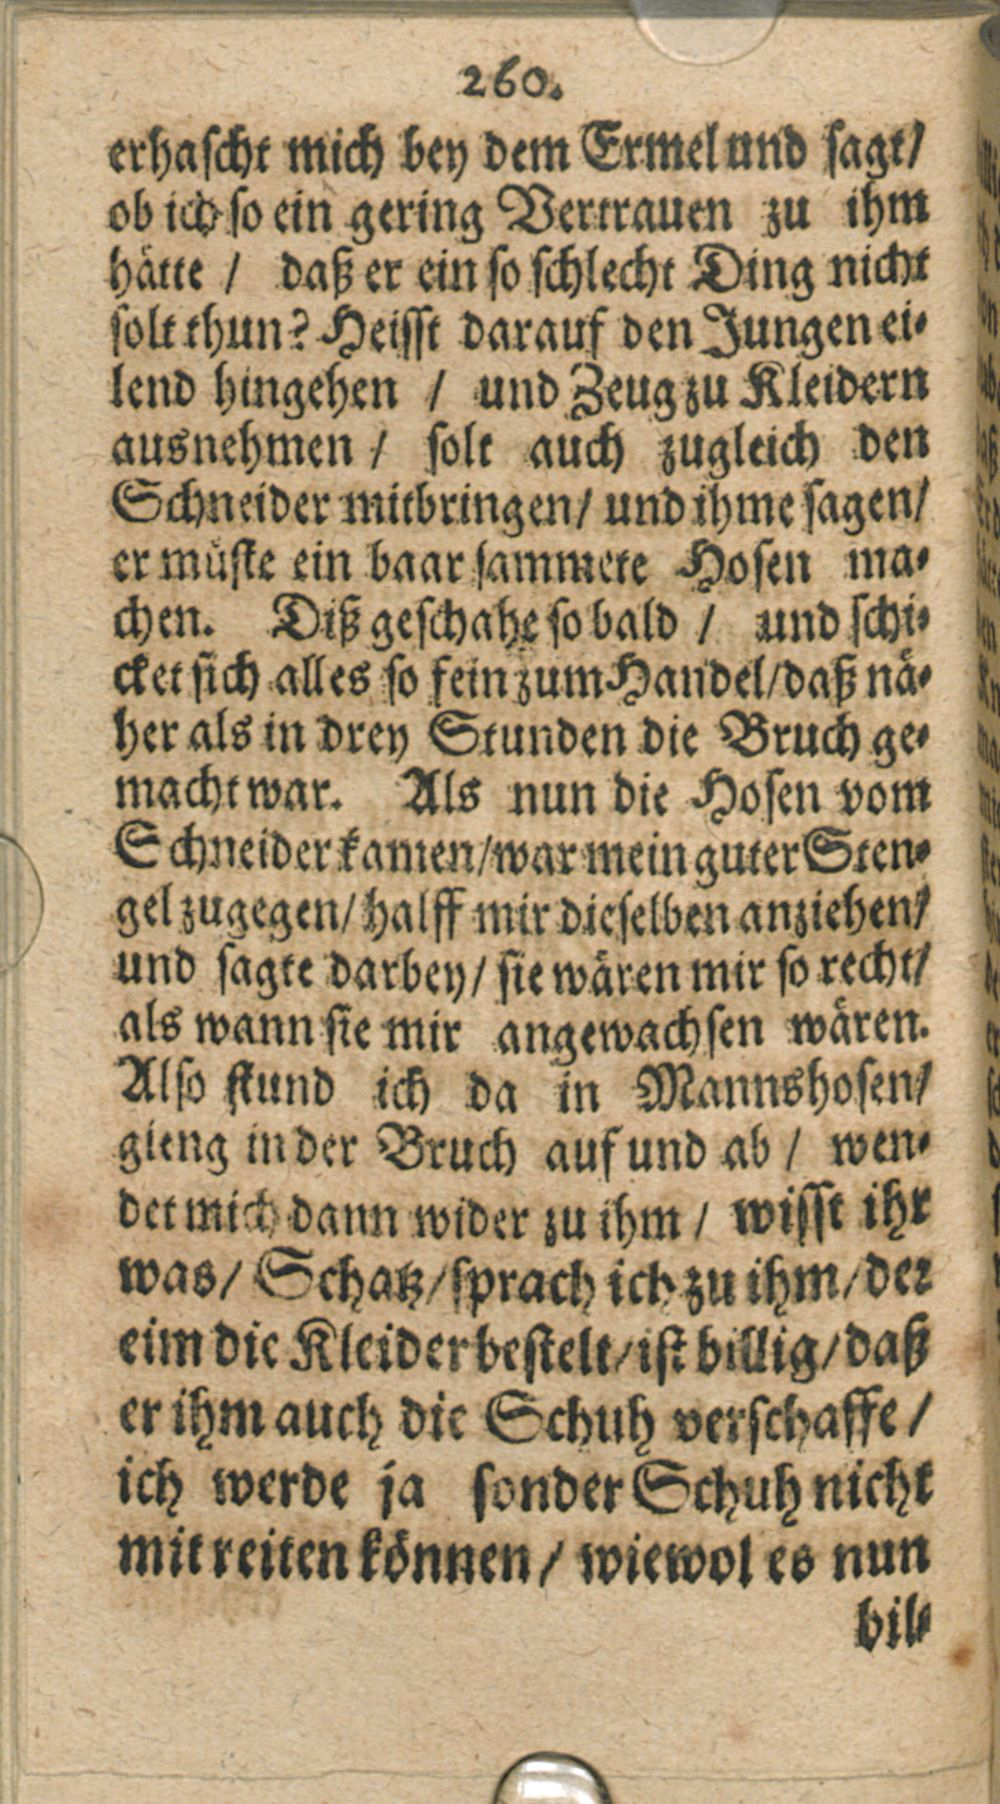 260.
erhascht mich bey dem Ermel und sagt/
ob ich so ein gering Vertrauen zu ihm
hätte / daß er ein so schlecht Ding nicht
solt thun? Heisst darauf den Jungen ei-
lend hingehen / und Zeug zu Kleidern
ausnehmen / solt auch zugleich den
Schneider mitbringen/ und ihme sagen/
er müste ein baar sammete Hosen ma-
chen. Diß geschahe so bald / und schi-
cket sich alles so fein zum Handel/daß nä-
her als in drey Stunden die Bruch ge-
macht war. Als nun die Hosen vom
Schneider kamen/war mein guter Sten-
gel zugegen/ halff mir dieselben anziehen/
und sagte darbey/ sie wären mir so recht/
als wann sie mir angewachsen wären.
Also stund ich da in Mannshosen/
gieng in der Bruch auf und ab / wen-
det mich dann wider zu ihm / wisst ihr
was/ Schatz/sprach ich zu ihm/der
eim die Kleider bestelt/ist billig/daß
er ihm auch die Schuh verschaffe/
ich werde ja sonder Schuh nicht
mit reiten können/ wiewol es nun
bil-